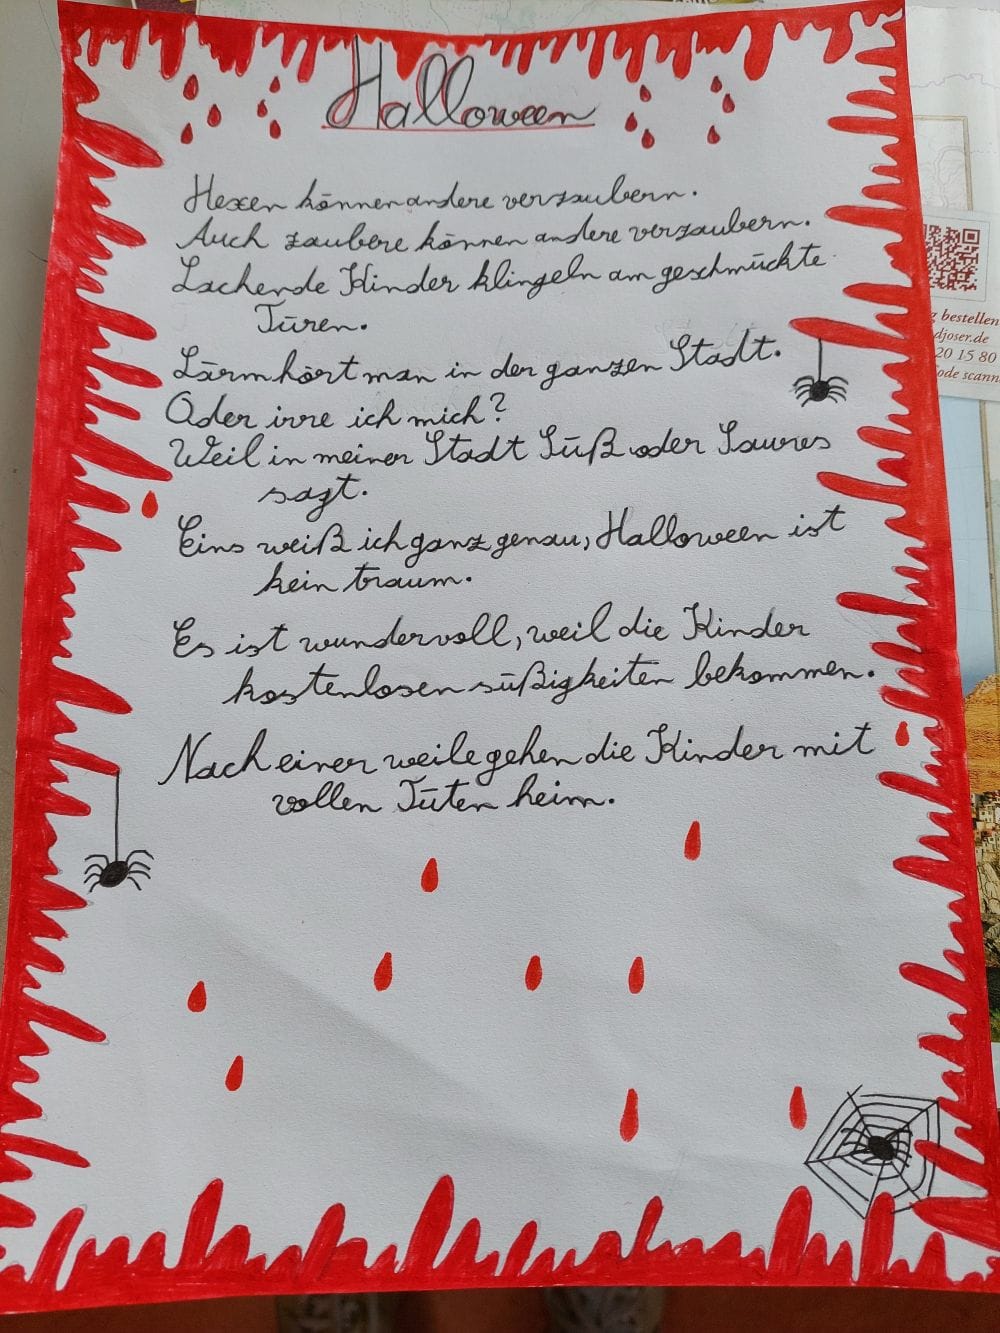 Halloween
Hexen können andere verzaubern.
Auch zaubere können andere verzaubern.
Lachende Kinder klingeln am geschmückte
Türen.
Lärm hört man in der ganzen Stadt.
Oder irre ich mich?
Weil in meiner Stadt Süß oder Saures
sagt.
Eins weiß ich ganz genau, Halloween ist
kein traum.
Es ist wundervoll, weil die Kinder
kostenlosen süßigkeiten bekommen.
Nach einer weile gehen die Kinder mit
vollen Tüten heim.
bestellen
djoser.de
20 15 80
ode scann